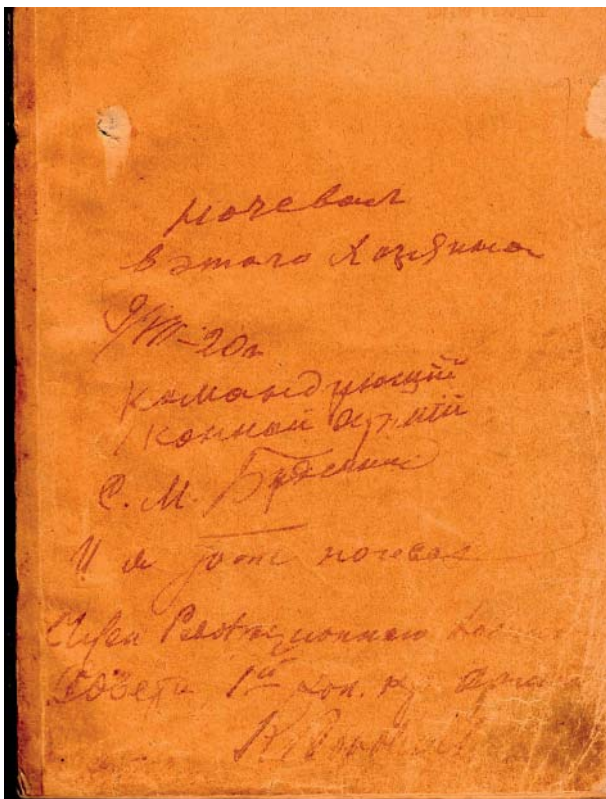 Ночевал
в этого хозяина
9/VIII-20г
Командующий
1 конный армий
С. М. Буденный
И я тоже ночевал
Член Революционного
Совета 1ой кон. кр. армии